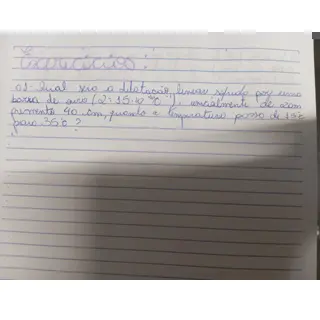 Exercícios:
01 Qual será a dilatação linear sofrida por uma
barra de ouro (2=15.10 °C), inicialmente de com
primento 40 cm, quando a temperatura passa de 15°C
para 35°C?